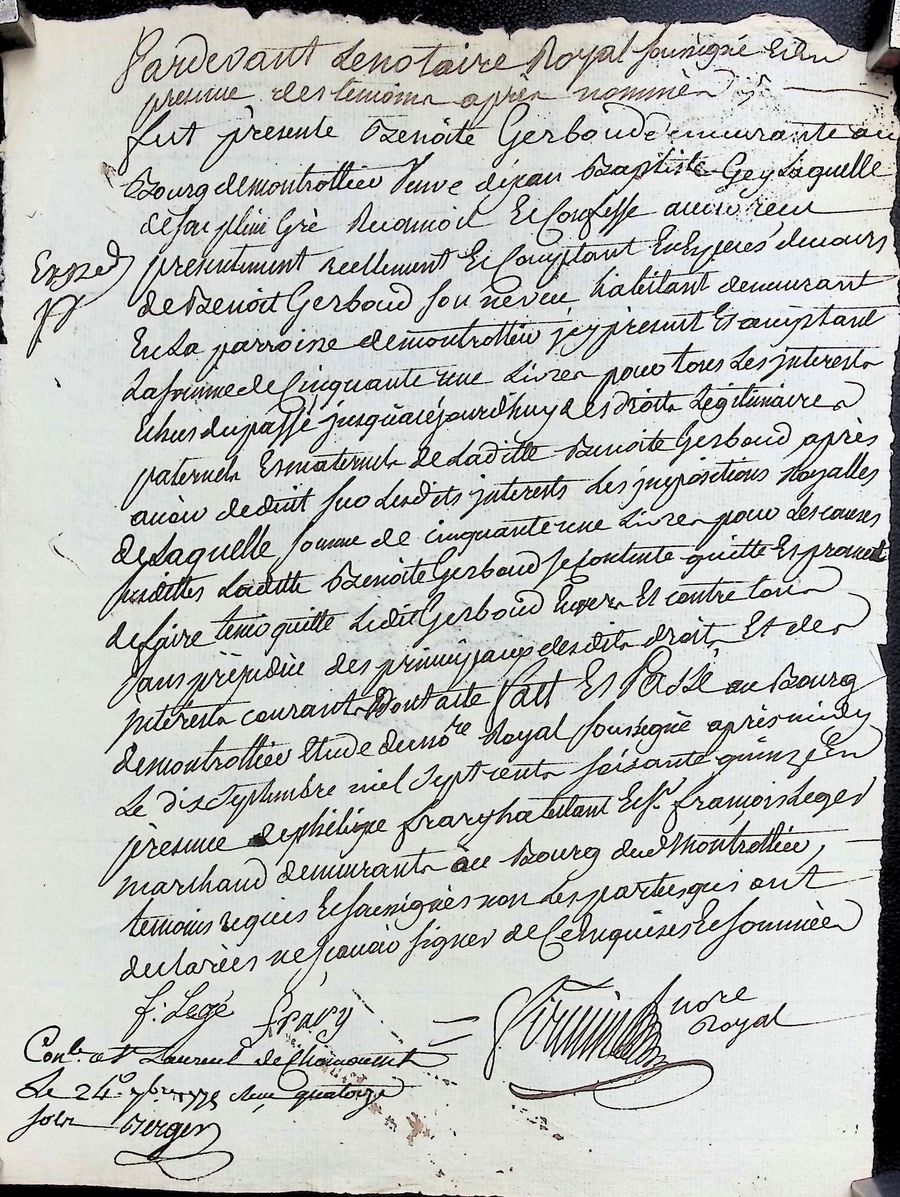 Pardevant Lenotaire Royal soussigné Et En
presence des temoins après nommés
fut présente Benoîte Gerboud demeurante au
Bourg demontrottier Veuve dejean Baptiste Gey Laquelle
de son plein Gré Reconnoit Et Confesse avoir reçu
Exped
presentement reellement Et Comptant En Especes decours
de Benoit Gerboud son neveu habitant demeurant
En La parroisse demontrottier jcy présent Et acceptant
La somme de Cinquante une Livres pour tous Les jnterests
Echus du passé jusquàcejourdhuy des Droits Légitimaires
paternels Et maternels de Laditte Benoite Gerboud après
avoir deduit sur Lesdits jnterests Les jmpositions Royalles
de Laquelle somme de cinquante une Livres pour Les causes
susdittes Laditte Benoite Gerboud se contente quitte Et promet
de faire tenir quitte Ledit Gerboud Envers Et contre tous
sans préjudice des principaux desdits droits Et des
jntérests courants Dont acte fait Et Passé au Bourg
demontrottier Etude du nore Royal soussigné après midy
Le dix Septembre mil Sept cents soixante quinze En
présence de phelipe frary habitant Et sr. françois Leger
marchand demeurants au Bourg dud Montrottier,
temoins requis Et soussignés non Les parties qui ont
declarées ne sçavoir signer de Ce Enquises Et sommées
f: Legé frary
nore
Royal
Conle. a St. Laurent de Chamousset
Le 24e. 7bre 1775 Reçu quatorze
sols Berger